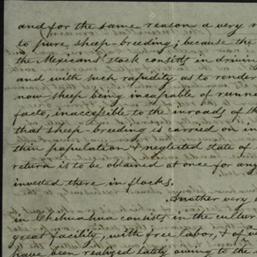 and for the same reason a very
to pure sheep-breeding; because the
the Mexicans stock consists in driving
and with such rapidity as to render
now sheep being incapable of running
facto, inaccessible to the inroads of
that sheep-breeding is carried on in
thin population & neglected state of
return is to be obtained at once for any
invested there in flocks.
Another very
in Chihuahua consists in the culture
great facility, with free labor, & of
have been realized lately owing to the